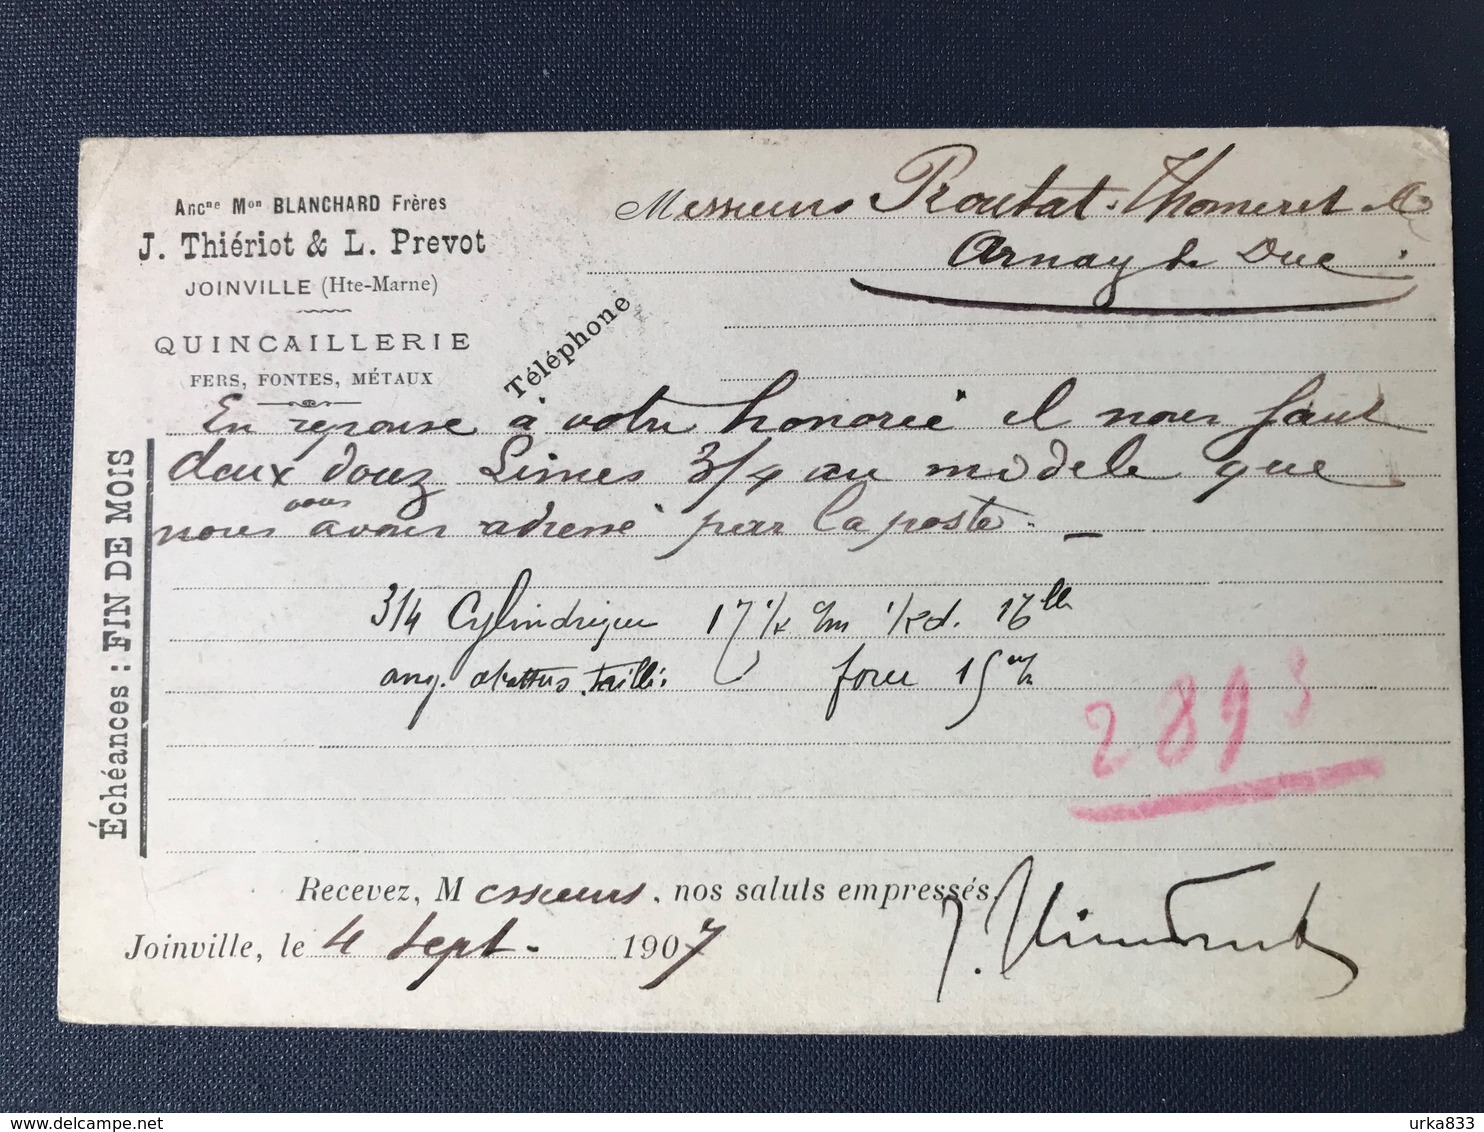 Ancne Mon BLANCHARD Frères
J. Thiériot & L. Prevot
JOINVILLE (Hte-Marne)
QUINCAILLERIE
FERS, FONTES, MÉTAUX
Téléphone
Échéances : FIN DE MOIS
Messieurs Proutat-Thomeret
Arnay le Duc
En réponse à votre honorée il nous faut
deux douz Limes 3/4 au modele que
nous vous avons adressé par la poste. —
3/4 Cylindrique 17
ang. abattus. taillé. 15
2893
Recevez, Messieurs, nos saluts empressés.
Joinville, le 4 Sept. 1907
urka833